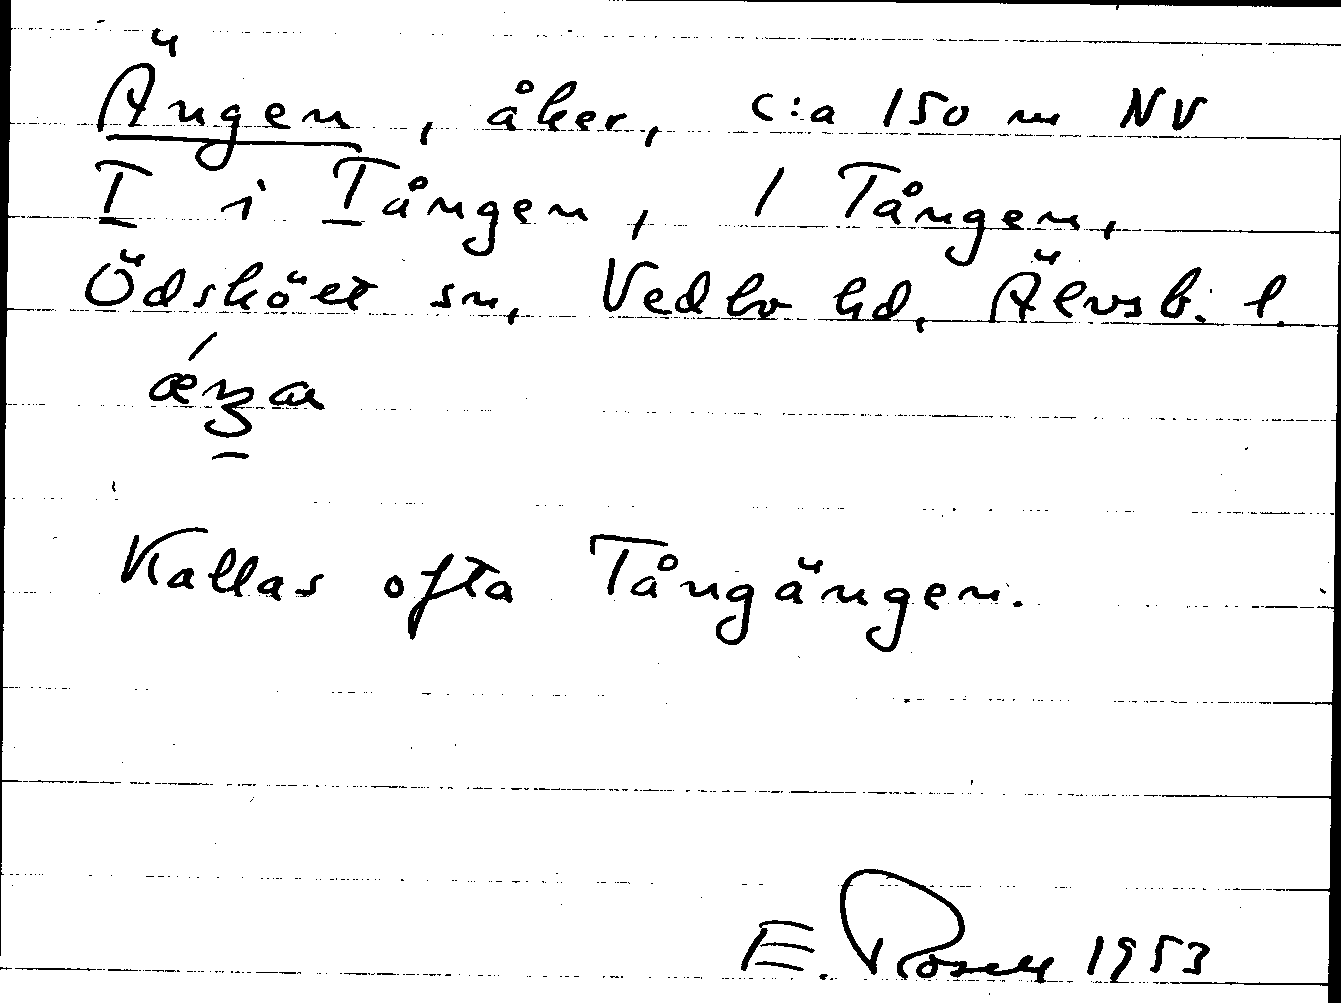 Ängen, åker, c:a 150 m NV
I i Tången, 1 Tången,
Ödskölt sn, Vedbo hd, Älvsb. l.
Kallas ofta Tångängen.
E. Rosell 1953